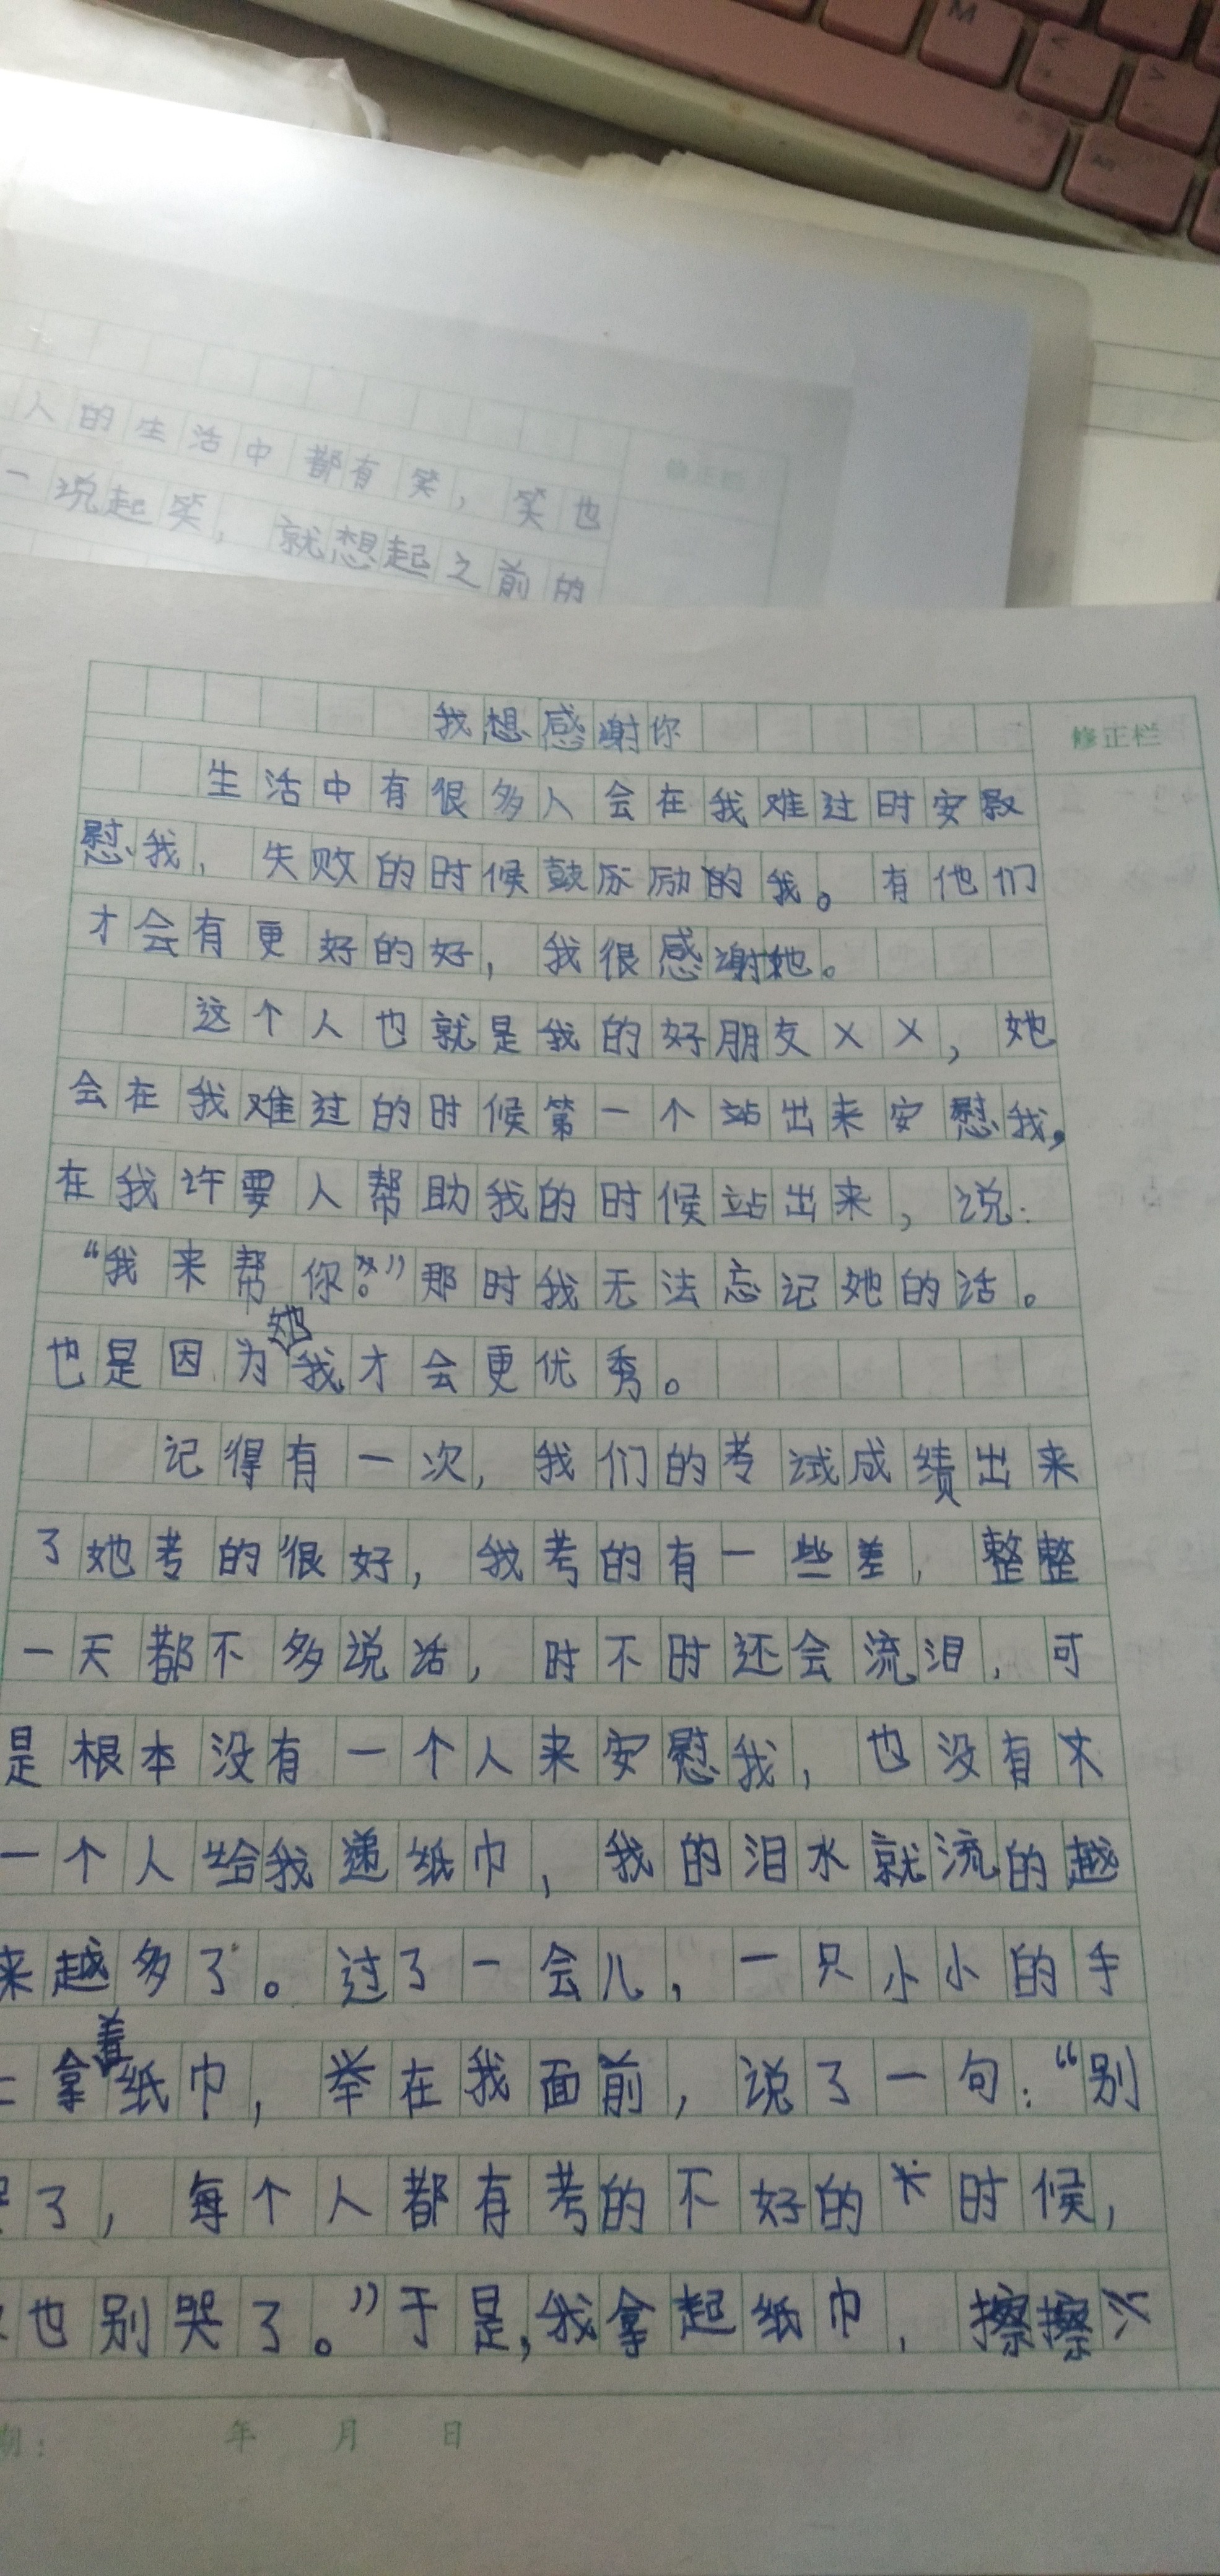 M
人的生活中都有笑，笑也
一说起笑，就想起之前的
修正栏
我想感谢你
修正栏
生活中有很多人会在我难过时安
慰我，失败的时候鼓励的我。有他们
才会有更好的好，我很感谢她。
这个人也就是我的好朋友××，她
会在我难过的时候第一个站出来安慰我，
在我许要人帮助我的时候站出来，说：
“我来帮你。”那时我无法忘记她的话。
也是因为她我才会更优秀。
记得有一次，我们的考试成绩出来
了她考的很好，我考的有一些差，整整
一天都不多说话，时不时还会流泪，可
是根本没有一个人来安慰我，也没有
一个人给我递纸巾，我的泪水就流的越
来越多了。过了一会儿，一只小小的手
拿着纸巾，举在我面前，说了一句：“别
了，每个人都有考的不好的时候，
也别哭了。”于是，我拿起纸巾，擦擦
期： 年 月 日